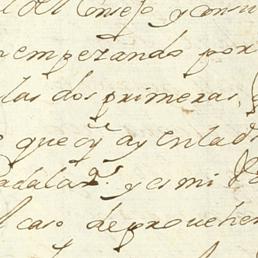 del Consejo y consu
empezando por
las dos primeras,
que oy ay en la d
adalaxª. y es mi
caso de proueher